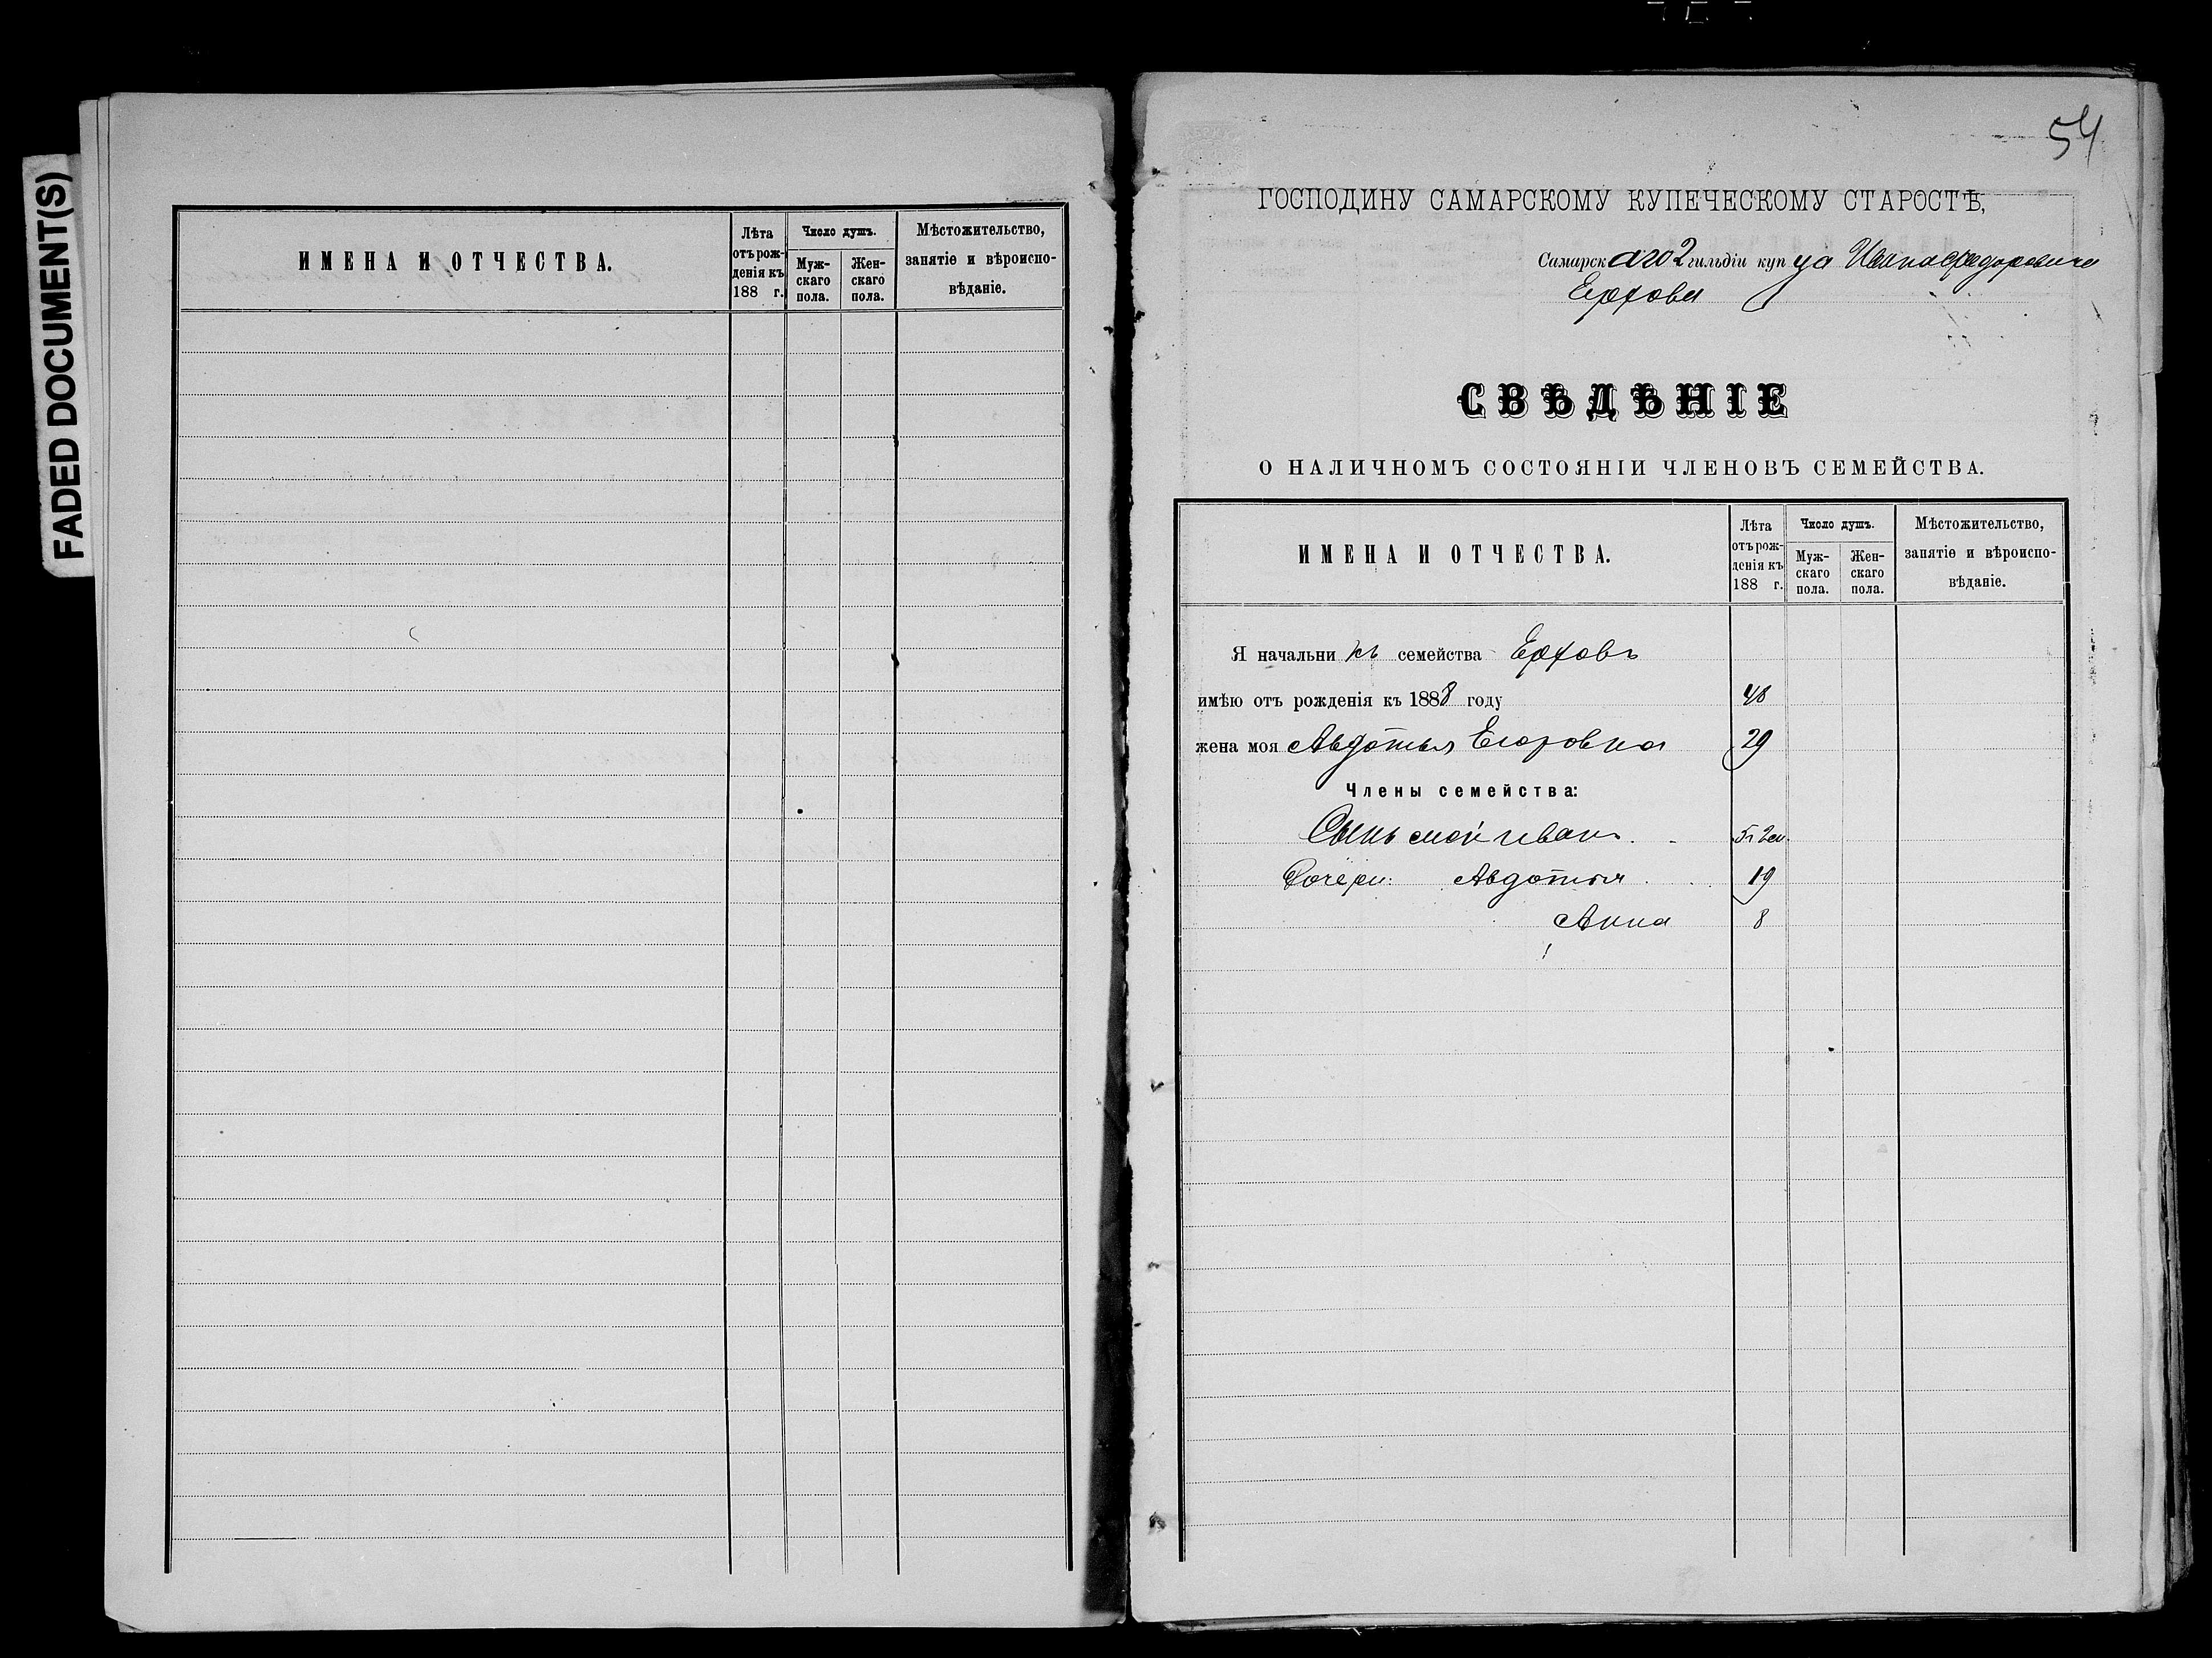 FADED DOCUMENT(S)
ИМЕНА И ОТЧЕСТВА.
Лѣта
отъ рож-
денія къ
188 г.
Число душъ.
Муж-
скаго
пола.
Жен-
скаго
пола.
Мѣстожительство,
занятіе и вѣроиспо-
вѣданіе.
54
ГОСПОДИНУ САМАРСКОМУ КУПЕЧЕСКОМУ СТАРОСТѢ,
Самарскаго 2 гильдіи купца Ивана Федоровича
Ерхова
СВѢДѢНІЕ
О НАЛИЧНОМЪ СОСТОЯНІИ ЧЛЕНОВЪ СЕМЕЙСТВА.
ИМЕНА И ОТЧЕСТВА.
Лѣта
отъ рож-
денія къ
188 г.
Число душъ.
Муж-
скаго
пола.
Жен-
скаго
пола.
Мѣстожительство,
занятіе и вѣроиспо-
вѣданіе.
Я начальникъ семейства Ерховъ
имѣю отъ рожденія къ 1888 году 48
жена моя Авдотья Егоровна 29
Члены семейства:
Сынъ мой иванъ 5г 2м.
Дочери: Авдотья 19
Анна 8